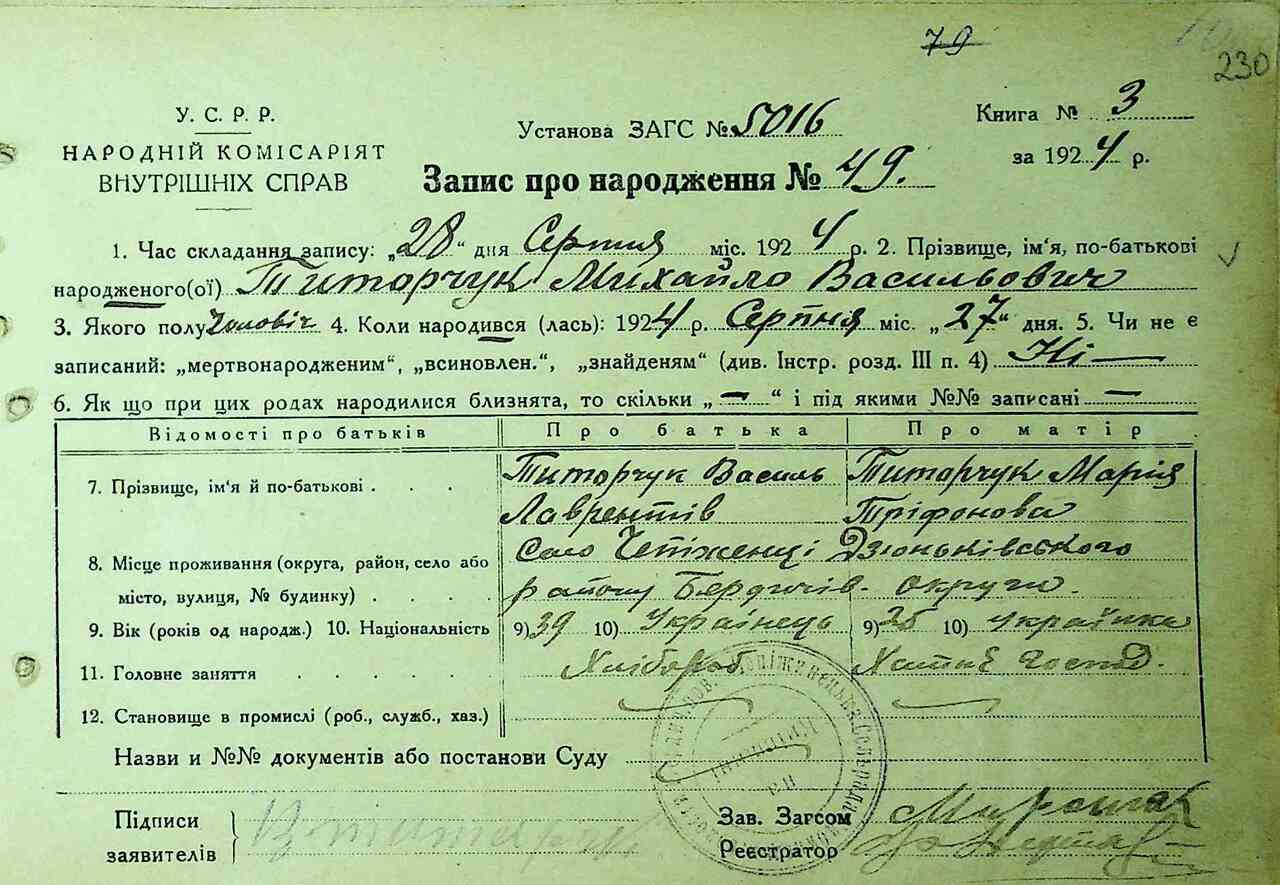 79
230
У. С. Р. Р.
НАРОДНІЙ КОМІСАРІЯТ
ВНУТРІШНІХ СПРАВ
Установа ЗАГС № 5016
Книга № 3
за 1924 р.
Запис про народження № 49.
1. Час складання запису: „28“ дня Серпня міс. 1924 р. 2. Прізвище, ім‘я, по-батькові
народженого(ої) Титорчук Михайло Васильович
3. Якого полу Чоловіч 4. Коли народився (лась): 1924 р. Серпня міс. „27“ дня. 5. Чи не є
записаний: „мертвонародженим“, „всиновлен.“, „знайденям“ (див. Інстр. розд. III п. 4) Ні —
6. Як що при цих родах народилися близнята, то скільки „—“ і під якими №№ записані —
Відомості про батьків Про батька Про матір
7. Прізвище, ім‘я й по-батькові . . . Титорчук Василь Титорчук Марія
Лаврентів Тріфонова
8. Місце проживання (округа, район, село або Село Чепіженці Дзюньківського
місто, вулиця, № будинку) . . . . району Бердичів. округи.
9. Вік (років од народж.) 10. Національність 9) 39 10) Українець 9) 25 10) Українка
11. Головне заняття . . . . . . Хлібороб Хатнє госпд.
12. Становище в промислі (роб., служб., хаз.)
Назви и №№ документів або постанови Суду
Підписи
заявителів
В титарчук
Зав. Загсом
Реєстратор